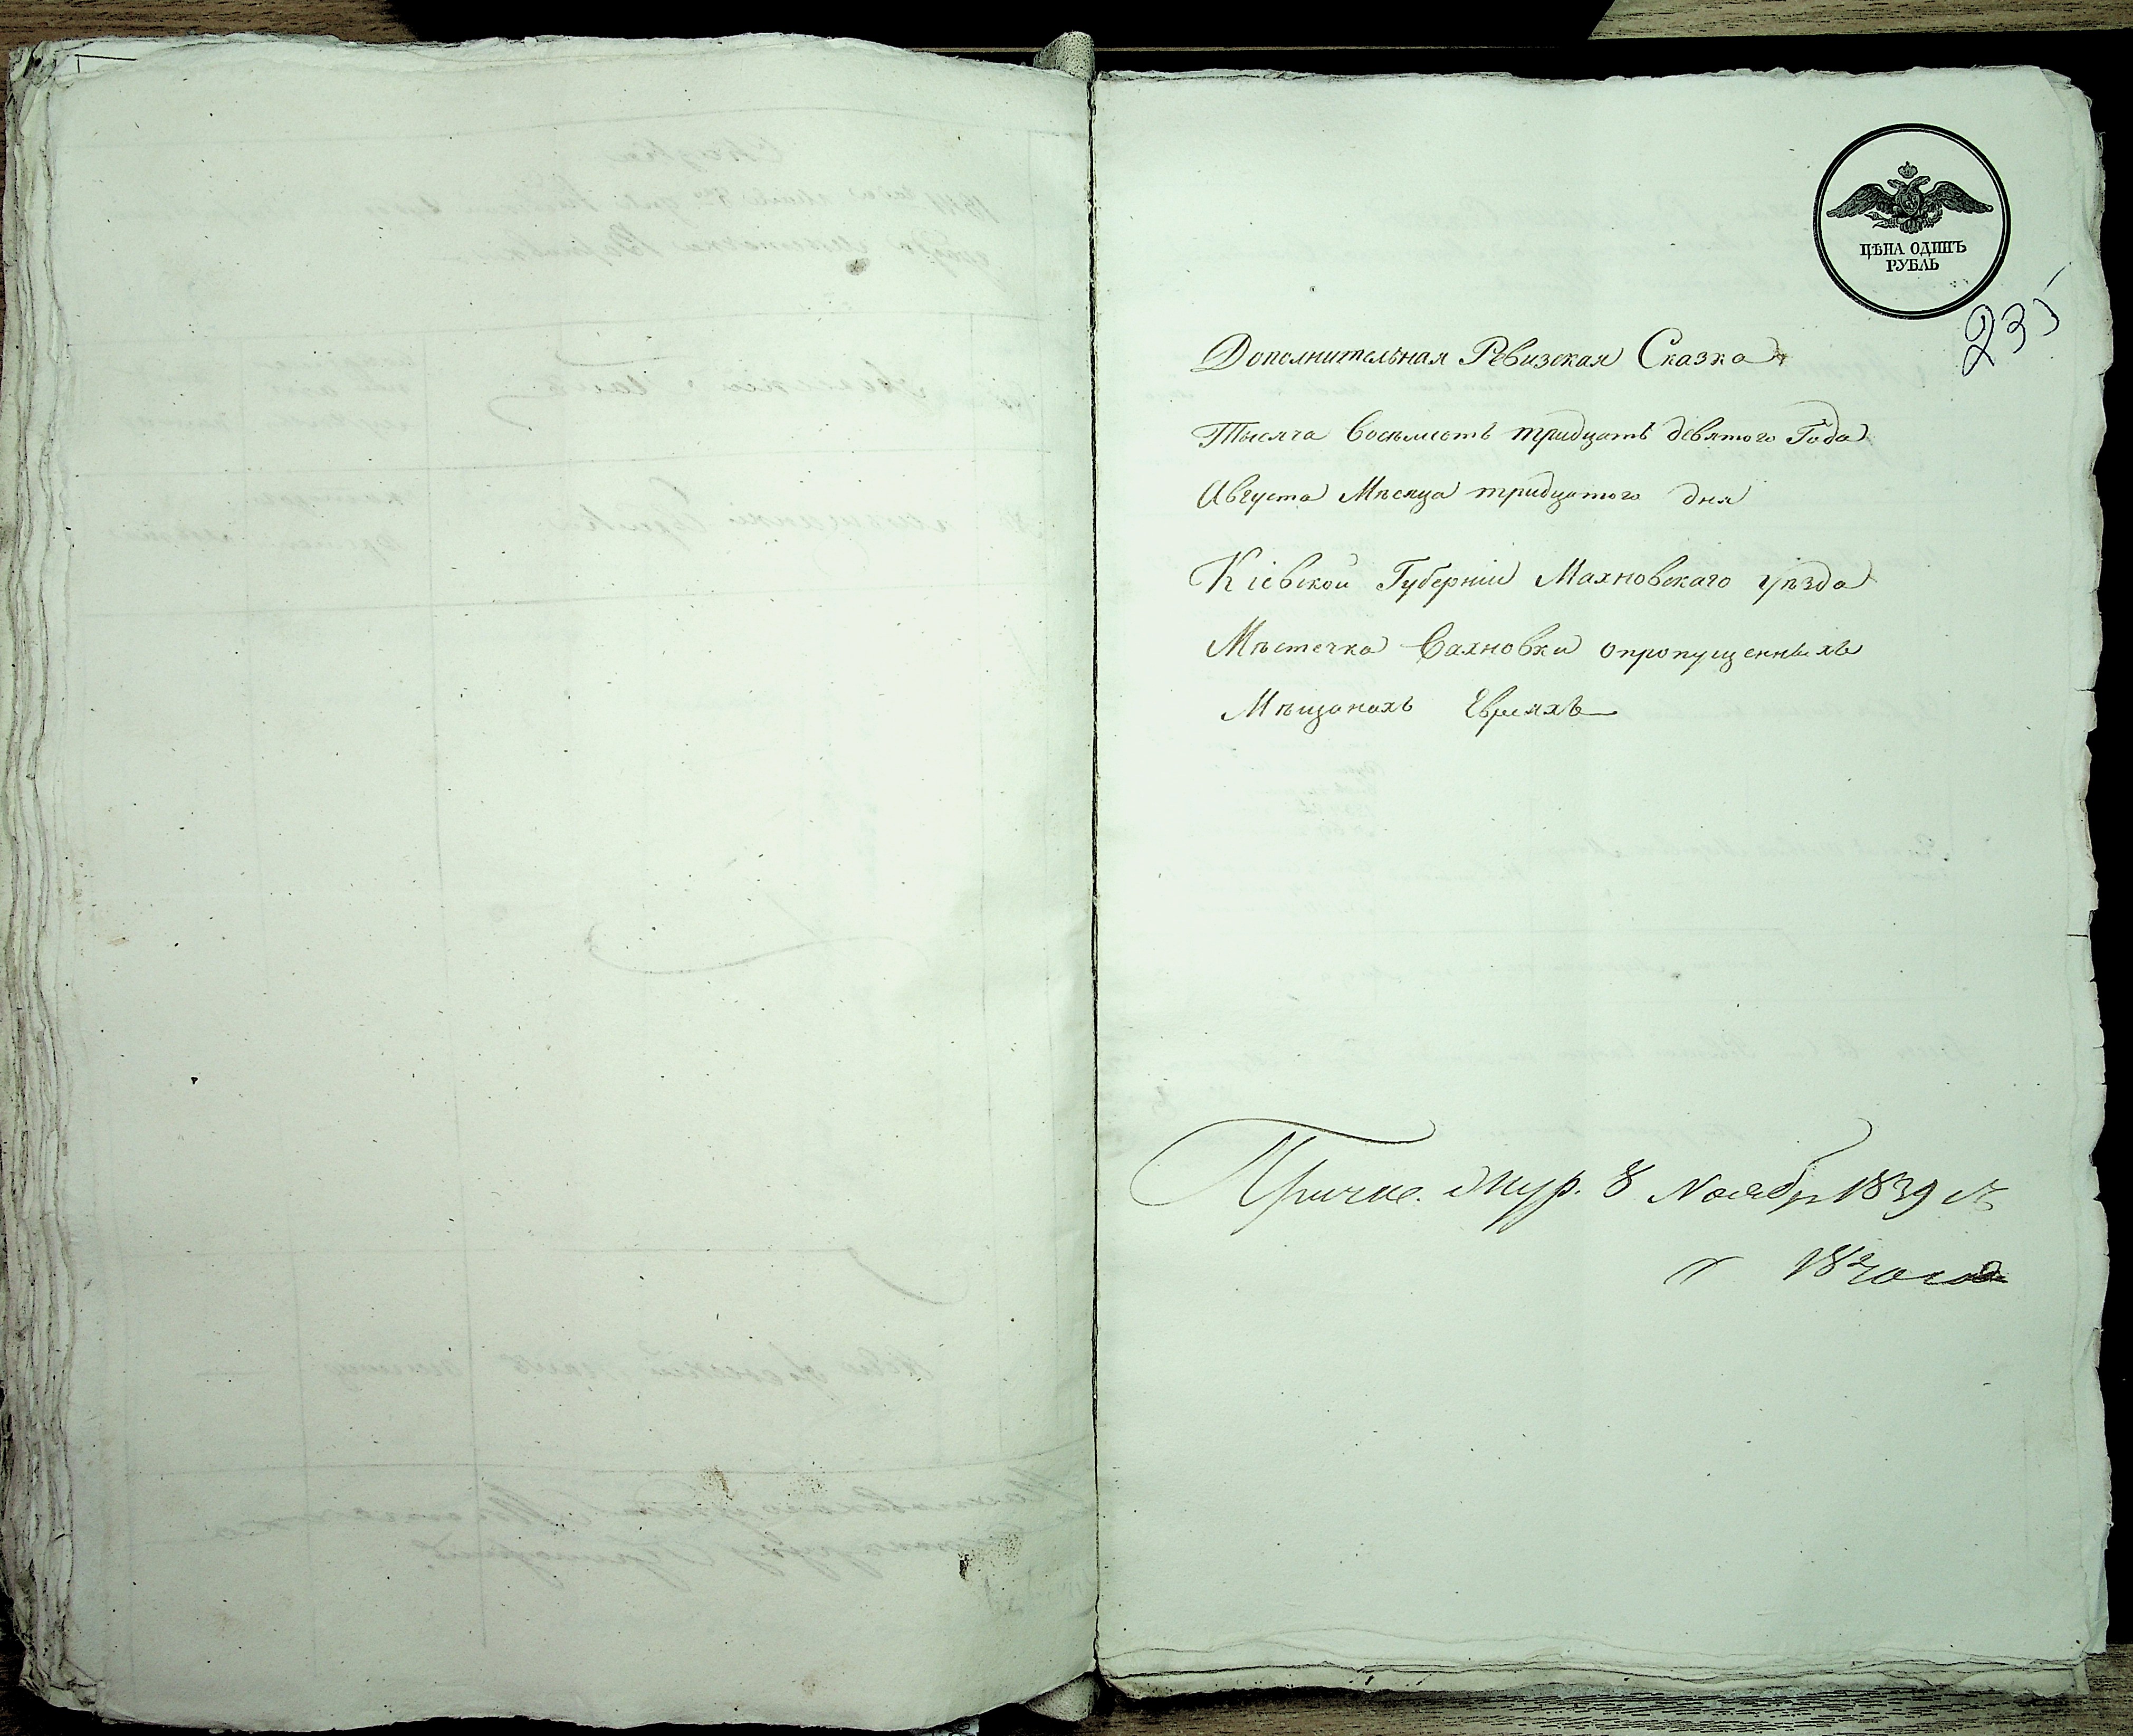 ЦѢНА ОДИНЪ
РУБЛЬ
235
Дополнительная Ревизская Сказка
Тысяча восѣмсотъ тридцать девятого Года
Августа Мѣсяца тридцатого дня
Кіевской Губерніи Махновскаго уѣзда
Мѣстечка Вахновки опропущенныхъ
Мѣщанахъ Евреяхъ
8 Ноября 1839